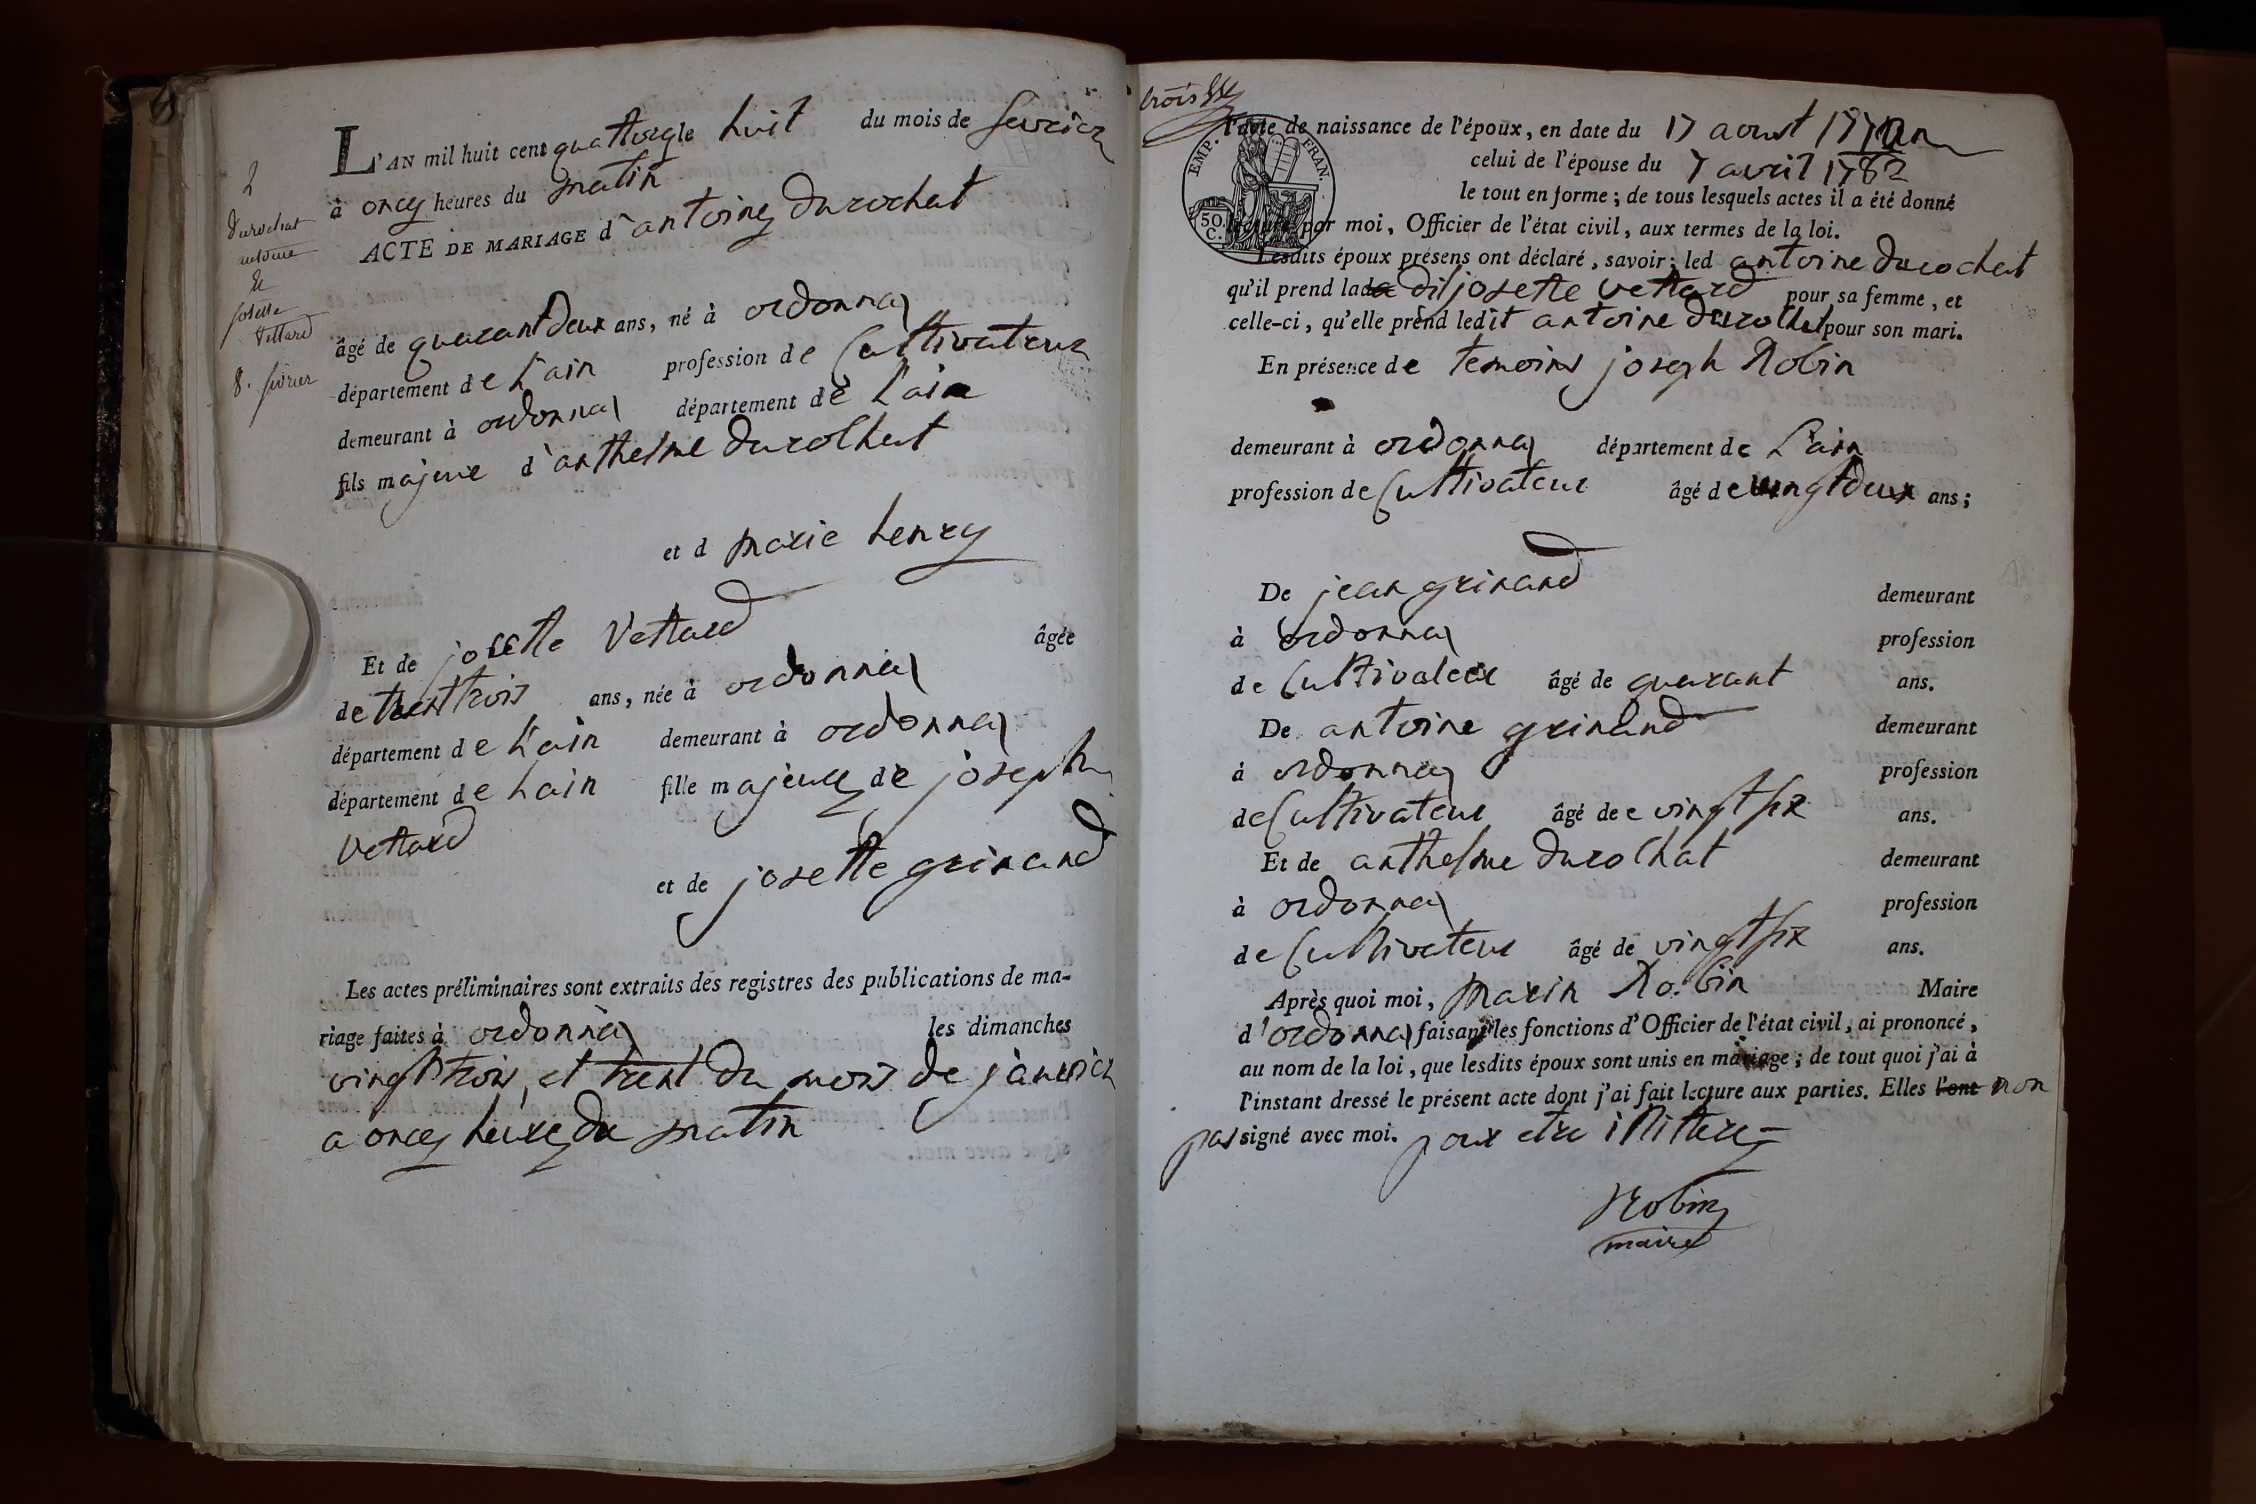 2
durochat
antoine
&
josette
Vettard
8. février
L'AN mil huit cent quattorze le huit du mois de fevrier
à onze heures du matin
ACTE DE MARIAGE d'antoine durochat
âgé de quarant deux ans, né à ordonna
département de L'ain profession de Cultivateur
demeurant à ordonna département de L'ain
fils majeur d'anthelme durochat
et d marie henry
Et de josette Vettard âgée
de trent trois ans, née à ordonna
département de L'ain demeurant à ordonna
département de Lain fille majeure de joseph
Vettard
et de josette grinand
Les actes préliminaires sont extraits des registres des publications de ma-
riage faites à ordonna les dimanches
vingt trois et trent du mois de janvier
a onze heure du matin
trois
l'acte de naissance de l'époux, en date du 17 aoust
celui de l'épouse du 7 avril 1782
le tout en forme ; de tous lesquels actes il a été donné
lecture par moi, Officier de l'état civil, aux termes de la loi.
EMP. FRAN.
50 C.
Lesdits époux présens ont déclaré, savoir : led antoine durochat
qu'il prend lad dit josette vettard pour sa femme, et
celle-ci, qu'elle prend ledit antoine durochat pour son mari.
En présence de temoins joseph Robin
demeurant à ordonna département de L'ain
profession de Cultivateur âgé de vingt deux ans ;
De jean grinand demeurant
à ordonna profession
de Cultivateur âgé de quarant ans.
De antoine grinand demeurant
à ordonna profession
de Cultivateur âgé de e vingt six ans.
Et de anthelme durochat demeurant
à ordonna profession
de Cultivateur âgé de vingt six ans.
Après quoi moi, marin Robin Maire
d'ordonna faisant les fonctions d'Officier de l'état civil, ai prononcé,
au nom de la loi, que lesdits époux sont unis en mariage ; de tout quoi j'ai à
l'instant dressé le présent acte dont j'ai fait lecture aux parties. Elles l'ont non
pas signé avec moi. pour etre illitere
Robin
maire